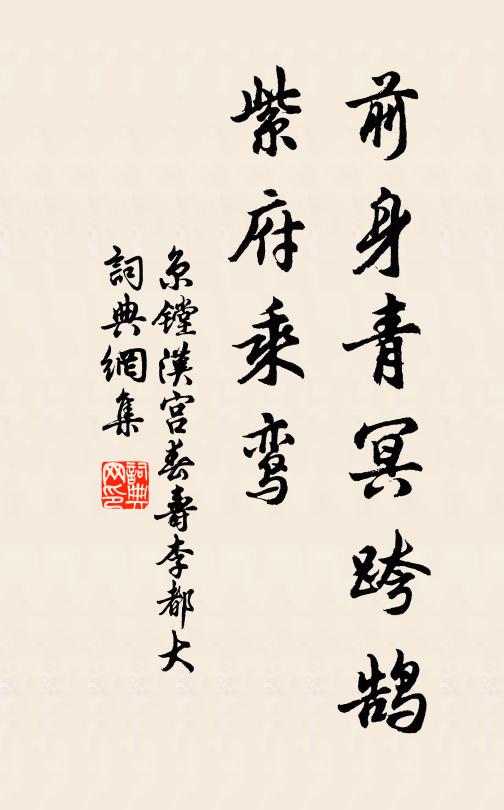 前身青冥跨鹄
紫府乘鸾
京镗漢宫春壽李都大
詞典網集
詞典網印